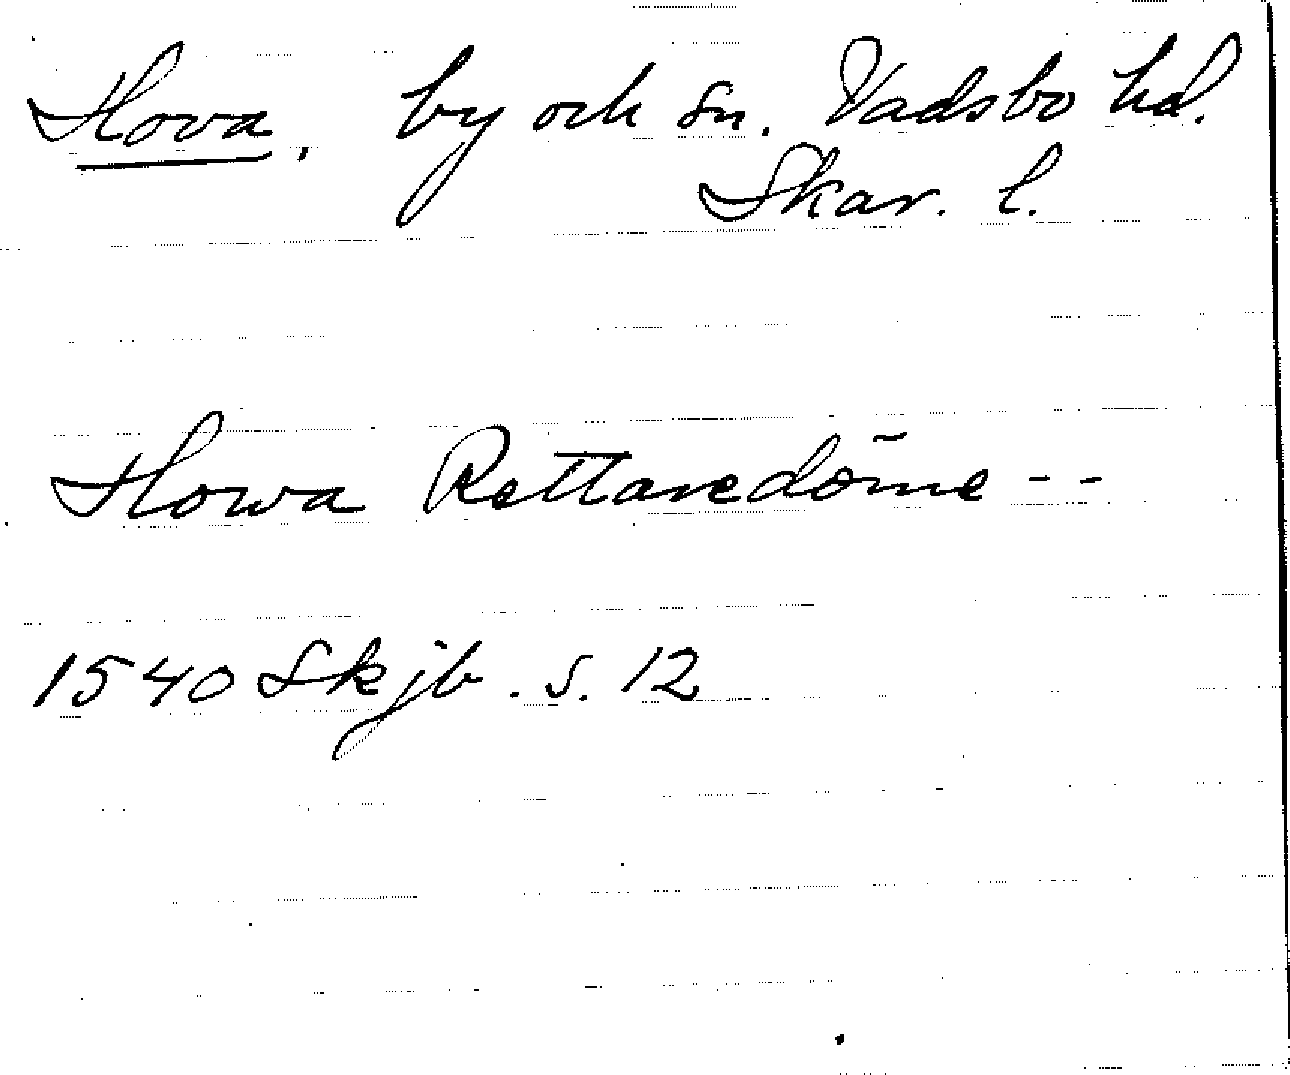 Hova, by och sn. Vadsbo hd.
Skar. l.
Howa Rettaredöm̄e - -
1540 Skjb. s. 12